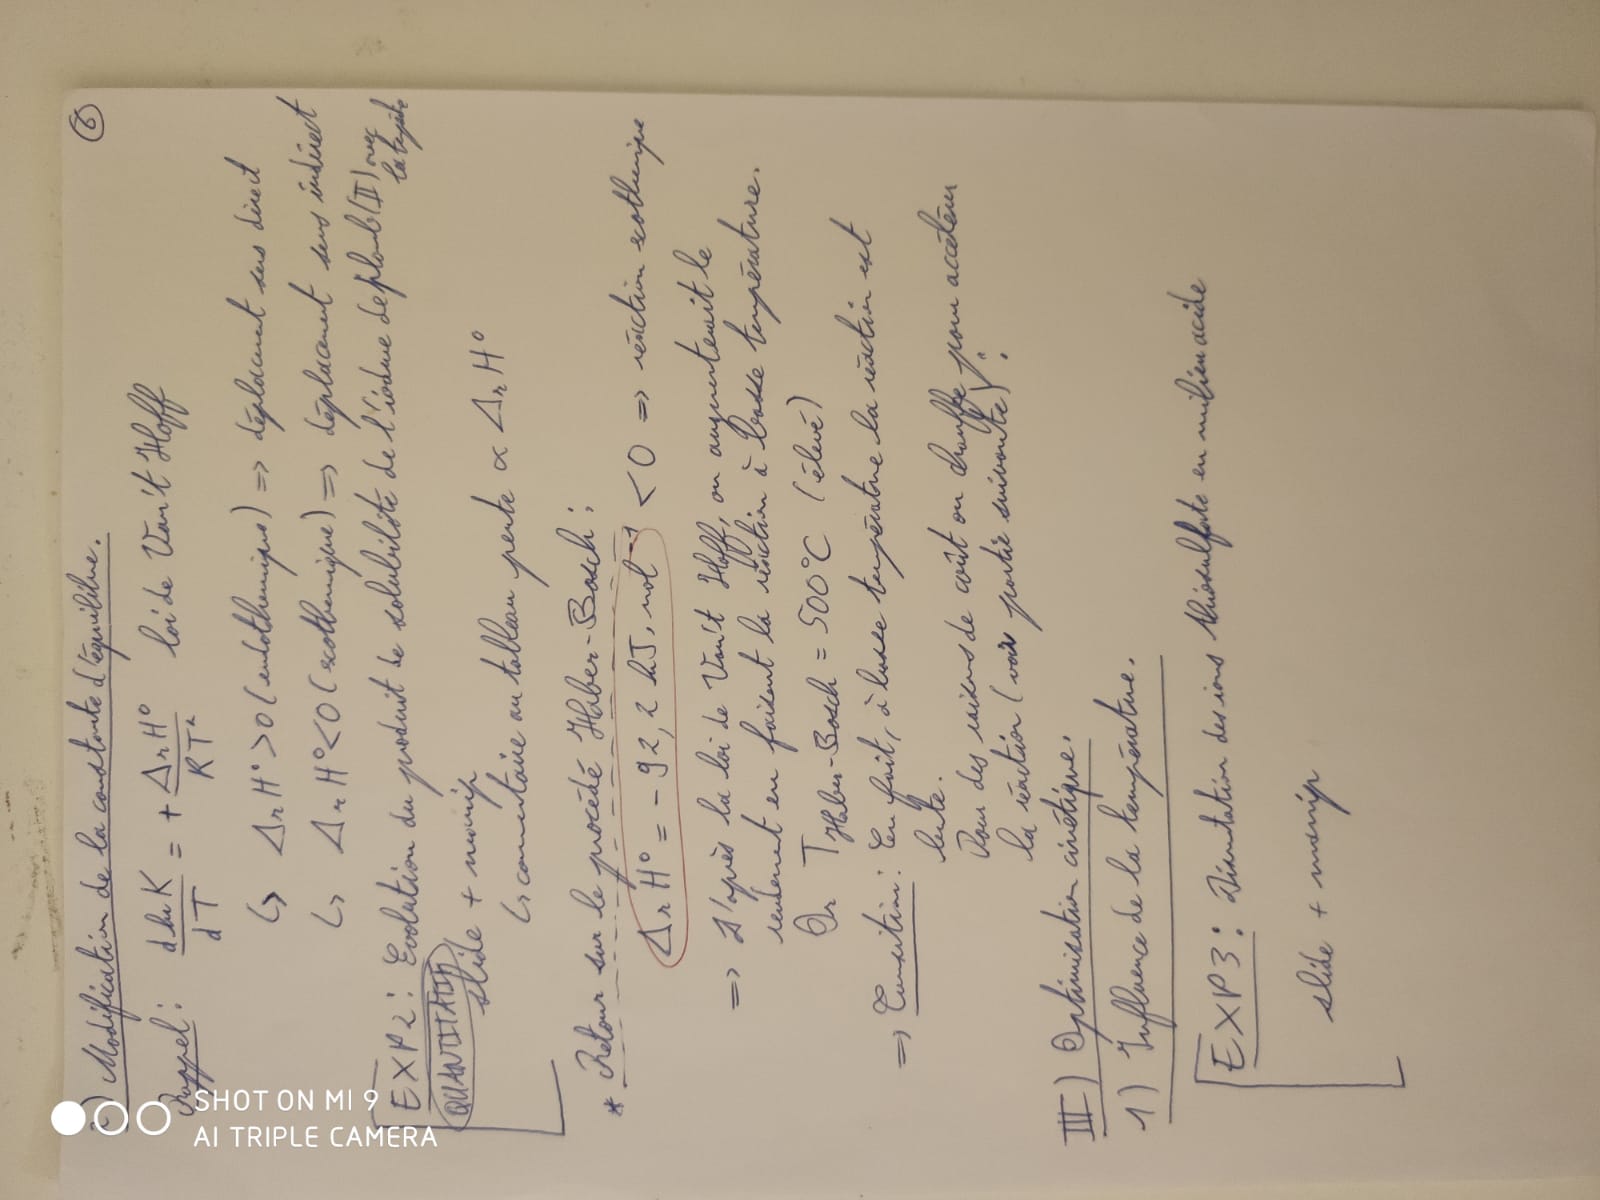 ) Modification de la constante d'équilibre.
6
Rappel : d ln K / dT = + ΔrH° / RT² loi de Van't Hoff
↳ ΔrH° > 0 (endothermique) => déplacement sens direct
↳ ΔrH° < 0 (exothermique) => déplacement sens indirect
EXP2 : Evolution du produit de solubilité de l'iodure de plomb (II) avec
la tepte
QUANTITATIF
slide + manip
↳ commentaire au tableau pente ∝ ΔrH°
* Retour sur le procédé Haber-Bosch :
ΔrH° = -92,2 kJ.mol⁻¹ < 0 => réaction exothermique
=> D'après la loi de Van't Hoff, on augmenterait le
rendement en faisant la réaction à basse température.
Or T Haber-Bosch = 500°C (élevé)
=> Transition : En fait, à basse température la réaction est
lente.
Pour des raisons de coût on chauffe pour accélérer
la réaction (voir partie suivante) :
III) Optimisation cinétique.
1) Influence de la température.
EXP3 : Dismutation des ions thiosulfate en milieu acide
slide + manip
SHOT ON MI 9
AI TRIPLE CAMERA